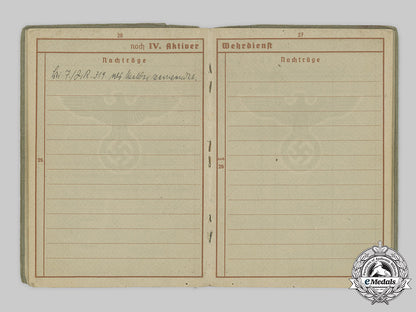 26
noch IV. Aktiver
Nachträge
In 7/J.R. 319 als
26
27
Wehrdienst
Nachträge
noch
26
eMedals